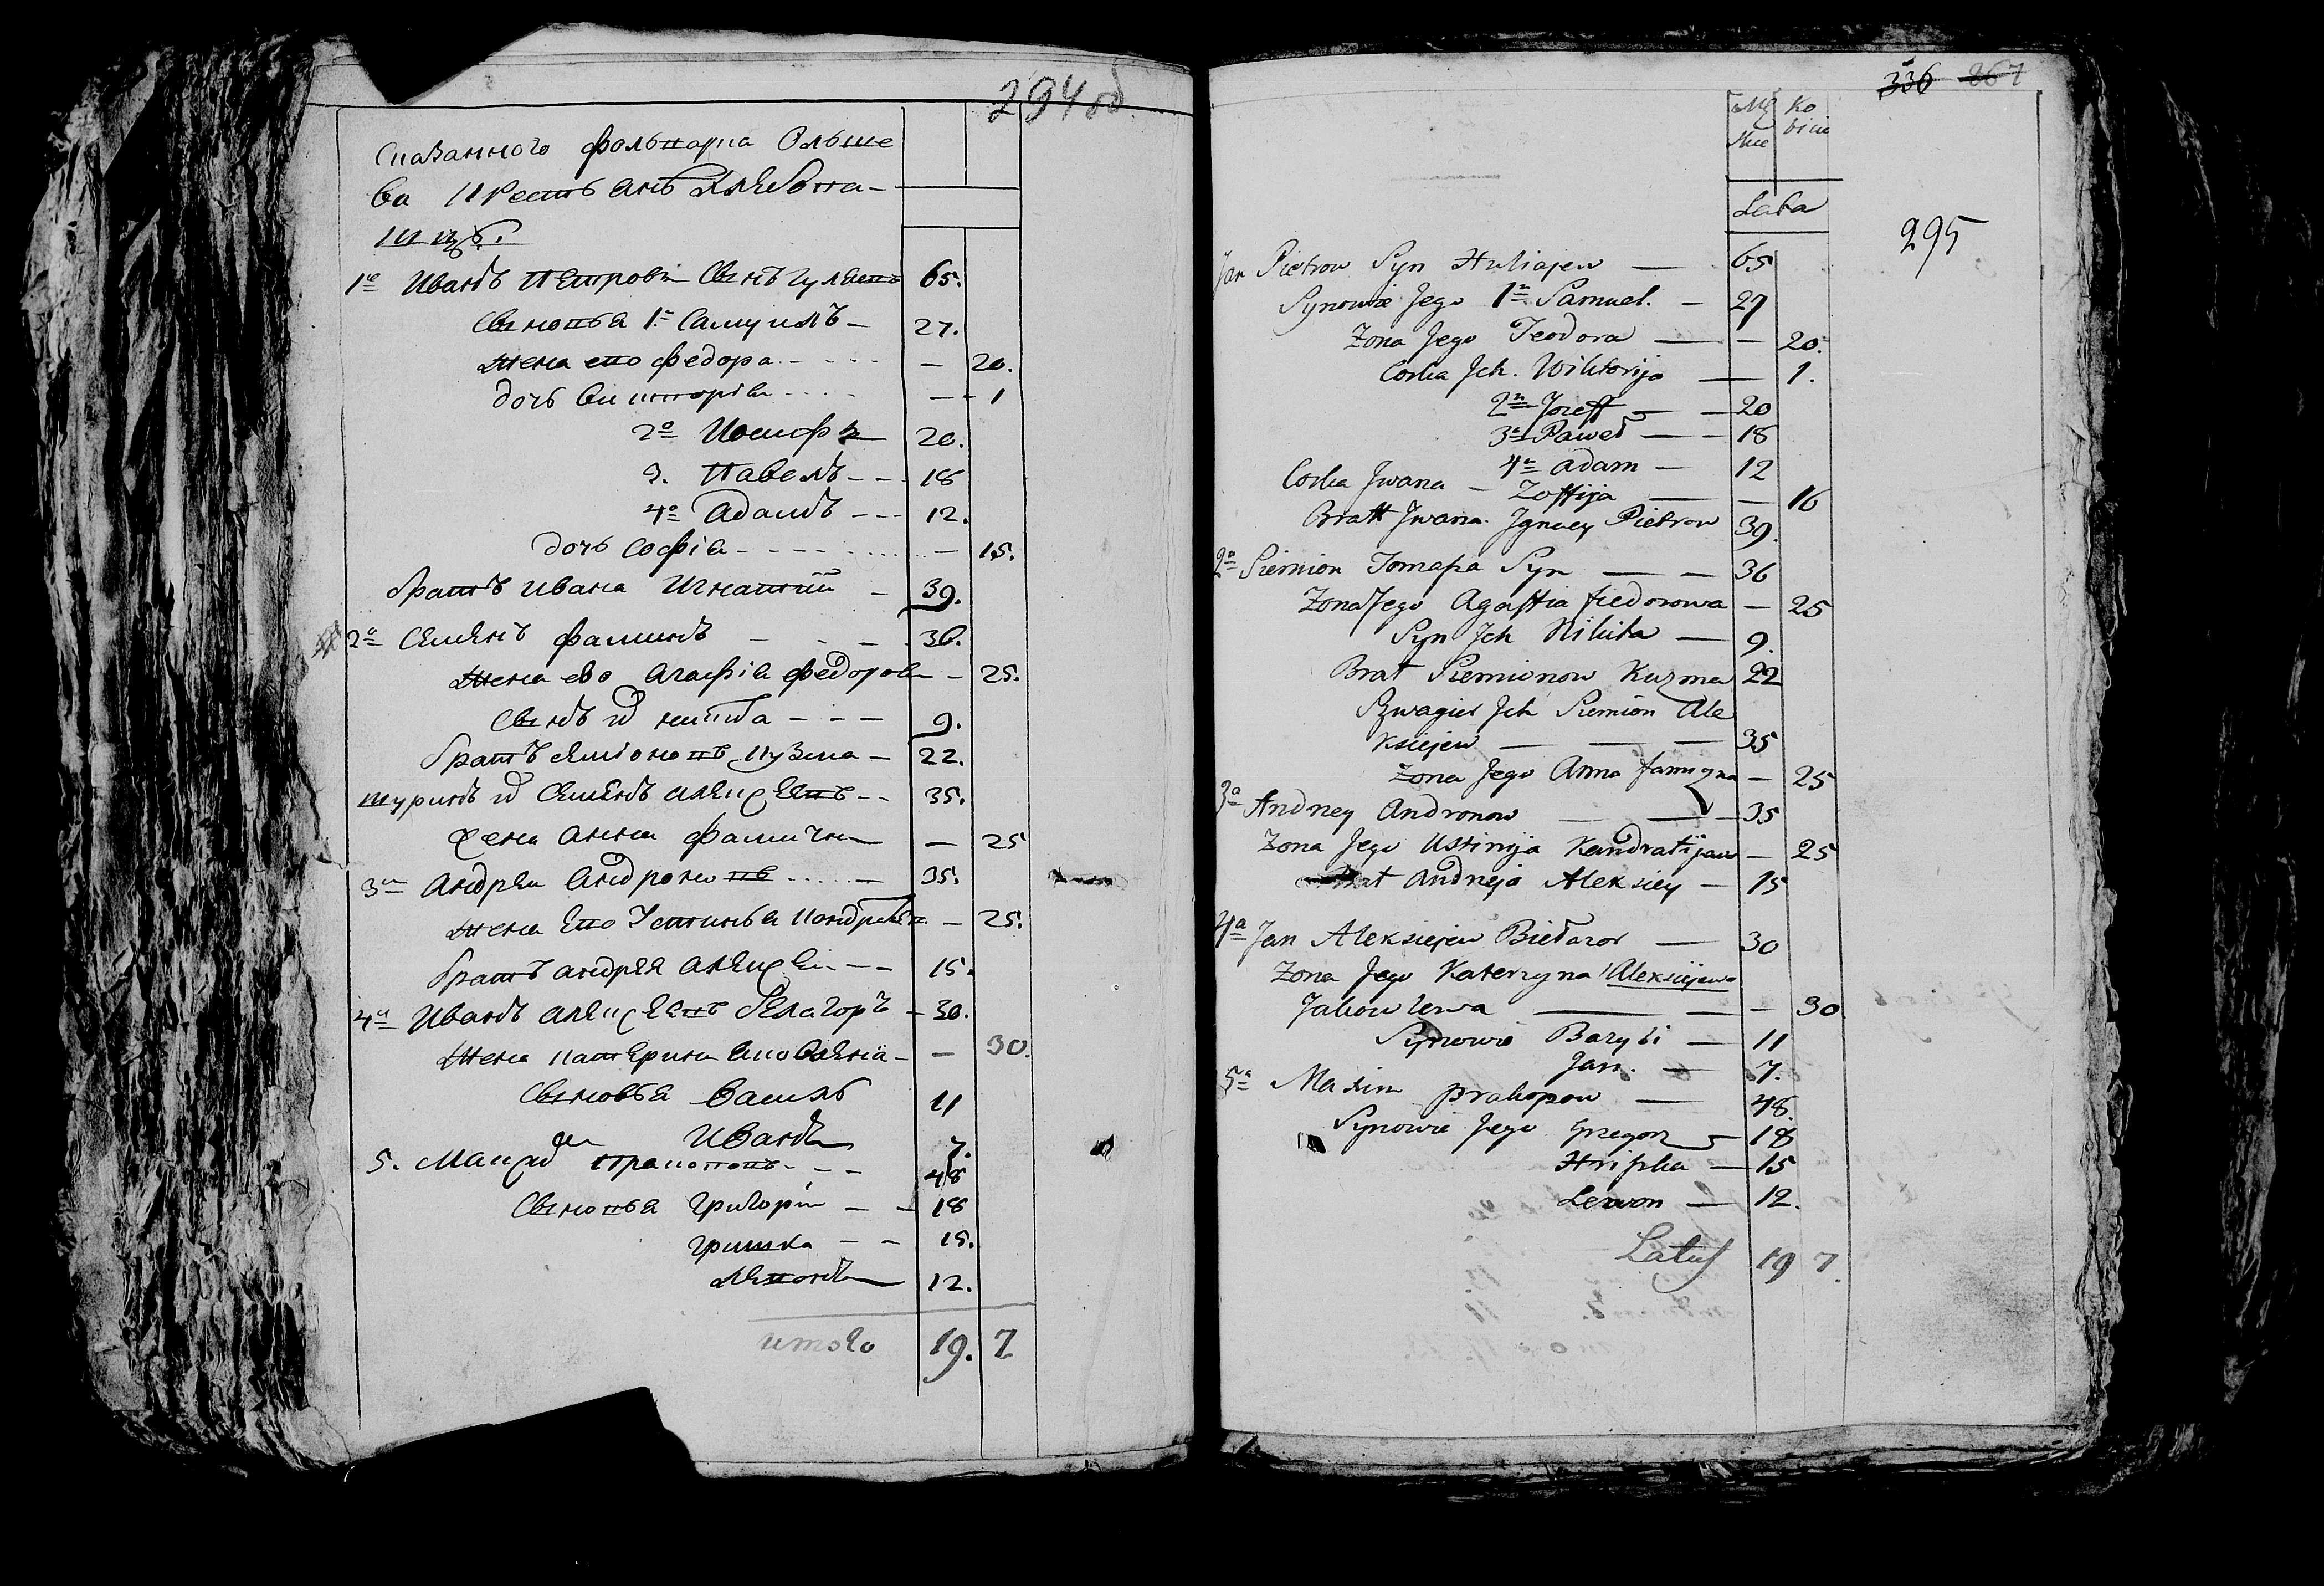 294 об
Сказанного фольварка Ольше
ва Крестьянъ Хлебопа-
шцъ.
1е Иванъ Петровъ Сынъ Гуляевъ 65.
Сыновья 1. Самуилъ — 27.
жена его Федора — 20.
дочь Викторія — 1
2е Иосифъ 20.
3. Павелъ — 18
4е Адамъ — 12.
дочь Софія — 15.
братъ Ивана Игнатій — 39.
2е Семенъ Фаминъ — 36.
жена ево Агафія Федорова — 25.
Сынъ их никита — 9.
братъ Семіоновъ Кузма — 22.
шуринъ их Семенъ алексеевъ — 35.
жена анна Фамична — 25
3а Андреи Андроновъ — 35.
жена Его Устинья Кондратьев. — 25.
братъ андрея алексеи — 15.
4а Иванъ алексеевъ белазоръ — 30.
жена катерина — 30.
Сыновья Василь 11
Иванъ 7.
5. Прокоповъ — 48
Сыновья Григорій — 18
гришка — 15.
Левонъ 12.
итого 19. 7
336 267
Mę Ko
skie biece
Lata
295
Jan Pietrow Syn Huliajew — 65
Synowie Jego 1n Samuel. — 27
Zona Jego Teodora — — 20.
Corka Jch. Wiktorija — 1.
2n Jozeff — 20
3n Paweł — 18
4n Adam — 12
Corka Jwana — Zoffija — — 16
Bratt Jwana Jgnacy Pietrow 39.
2a Siemion Tomasza Syn — — 36
Zona Jego Agaffia Fiedorowa — 25
Syn Jch Nikita — 9.
Brat Siemionow Kuzma 22
Szwagier Jch Siemion Ale
ksiejew — — — 35
Zona Jego Anna — 25
3a Andrzey Andronow — — 35
Zona Jego Ustinija Kandratijaw — 25
Brat Andreja Aleksiey — 15
4a Jan Aleksiejew Biełazor — 30
Zona Jego Katerzyna Aleksiejewa
Jakowlewa — — — 30
Synowie Bazyli — 11
Jan. — 7.
5a Maxim Prakopow — 48.
Synowie Jego Gregorz — 18
Hriszka — 15
Lewon — 12.
Latus 19 7.